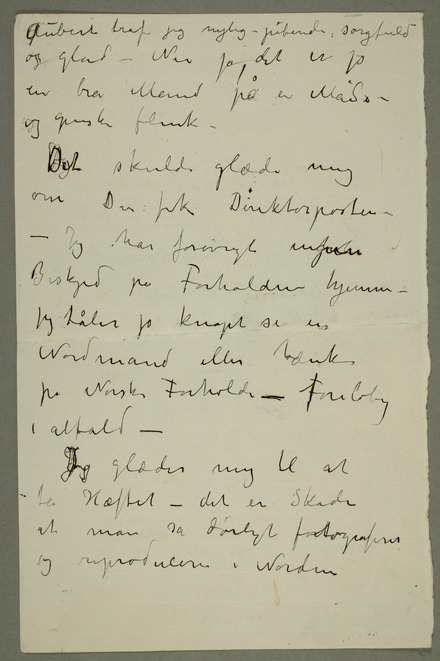 Aubert traf jeg nylig – pibende, sorgfuld
og glad – Nu ja, det er jo
en bra Mand på en Måde –
og ganske flink –
Det skulde glæde mig
om Du fik Direktørposten –
– Jeg har forøvrigt ingen
Beskjed på Forholdene hjemme –
jeg tåler jo knapt se en
Nordmand eller tænke
på Norske Forholde – Foreløbig
i alfald –
Jeg glædes mig til at
se Hæftet – det er Skade
at man så dårligt fotograferer
og reproducerer i Norden